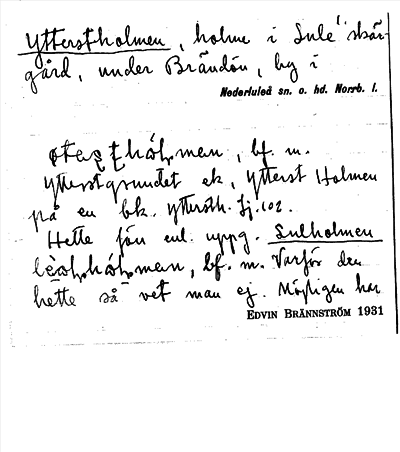 Ytterstholmen, holme i Lule skär-
gård, under Brändön, by i
Nederluleå sn. o. hd. Norrb. l.
bf. m.
Ytterstgrundet ek, Ytterst Holmen
på en bk. Yttersth. Fj. 102.
Hette förr enl. uppg. Sulholmen
bf. m. Varför den
hette så vet man ej. Möjligen har
EDVIN BRÄNNSTRÖM 1931